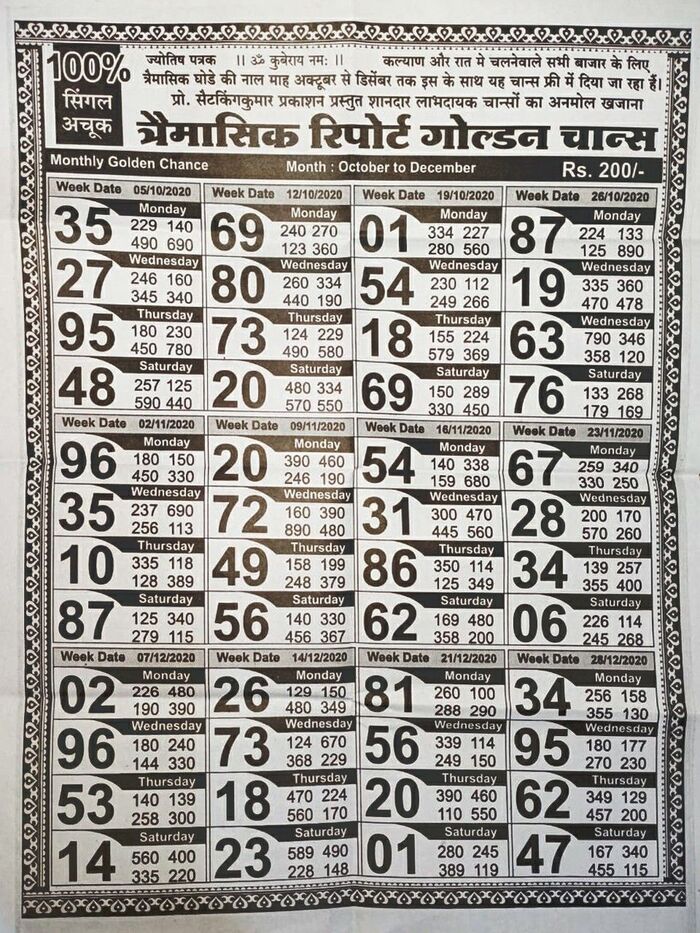 100%
सिंगल
अचूक
ज्योतिष पत्रक || ॐ कुबेराय नमः || कल्याण और रात मे चलनेवाले सभी बाजार के लिए
त्रैमासिक घोडे की नाल माह अक्टूबर से डिसेंबर तक इस के साथ यह चान्स फ्री में दिया जा रहा हैं।
प्रो. सैटकिंगकुमार प्रकाशन प्रस्तुत शानदार लाभदायक चान्सों का अनमोल खजाना
त्रैमासिक रिपोर्ट गोल्डन चान्स
Monthly Golden Chance Month : October to December Rs. 200/-
Week Date 05/10/2020 Week Date 12/10/2020 Week Date 19/10/2020 Week Date 26/10/2020
Monday Monday Monday Monday
35 229 140 69 240 270 01 334 227 87 224 133
490 690 123 360 280 560 125 890
Wednesday Wednesday Wednesday Wednesday
27 246 160 80 260 334 54 230 112 19 335 360
345 340 440 190 249 266 470 478
Thursday Thursday Thursday Wednesday
95 180 230 73 124 229 18 155 224 63 790 346
450 780 490 580 579 369 358 120
Saturday Saturday Saturday Saturday
48 257 125 20 480 334 69 150 289 76 133 268
590 440 570 550 330 450 179 169
Week Date 02/11/2020 Week Date 09/11/2020 Week Date 16/11/2020 Week Date 23/11/2020
Monday Monday Monday Monday
96 180 150 20 390 460 54 140 338 67 259 340
450 330 246 190 159 680 330 250
Wednesday Wednesday Wednesday Wednesday
35 237 690 72 160 390 31 300 470 28 200 170
256 113 890 480 445 560 570 260
Thursday Thursday Thursday Thursday
10 335 118 49 158 199 86 350 114 34 139 257
128 389 248 379 125 349 355 400
Saturday Saturday Saturday Saturday
87 125 340 56 140 330 62 169 480 06 226 114
279 115 456 367 358 200 245 268
Week Date 07/12/2020 Week Date 14/12/2020 Week Date 21/12/2020 Week Date 28/12/2020
Monday Monday Monday Monday
02 226 480 26 129 150 81 260 100 34 256 158
190 390 480 349 288 290 355 130
Wednesday Wednesday Wednesday Wednesday
96 180 240 73 124 670 56 339 114 95 180 177
144 330 368 229 249 150 270 230
Thursday Thursday Thursday Thursday
53 140 139 18 470 224 20 390 460 62 349 129
258 300 560 170 110 550 457 200
Saturday Saturday Saturday Saturday
14 560 400 23 589 490 01 280 245 47 167 340
335 220 228 148 389 119 455 115